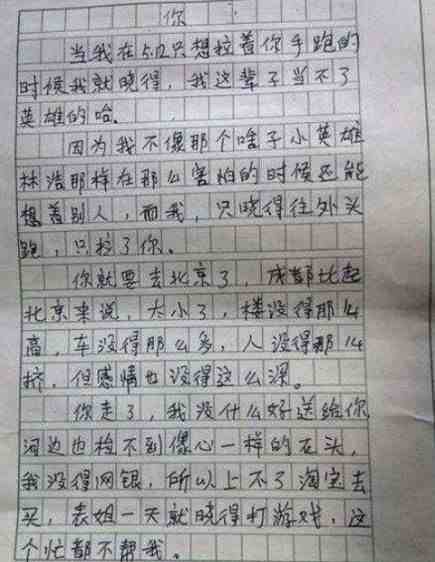 你
当我在512只想拉着你手跑的
时候我就晓得，我这辈子当不了
英雄的哈。
因为我不像那个啥子小英雄
林浩那样在那么害怕的时候还能
想着别人，而我，只晓得往外头
跑，只拉了你。
你就要去北京了，成都比起
北京来说，太小了，楼没得那么
高，车没得那么多，人没得那么
挤，但感情也没得这么深。
你走了，我没什么好送给你
河边也捡不到像心一样的石头，
我没得网银，所以上不了淘宝去
买，表姐一天就晓得打游戏，这
个忙都不帮我。